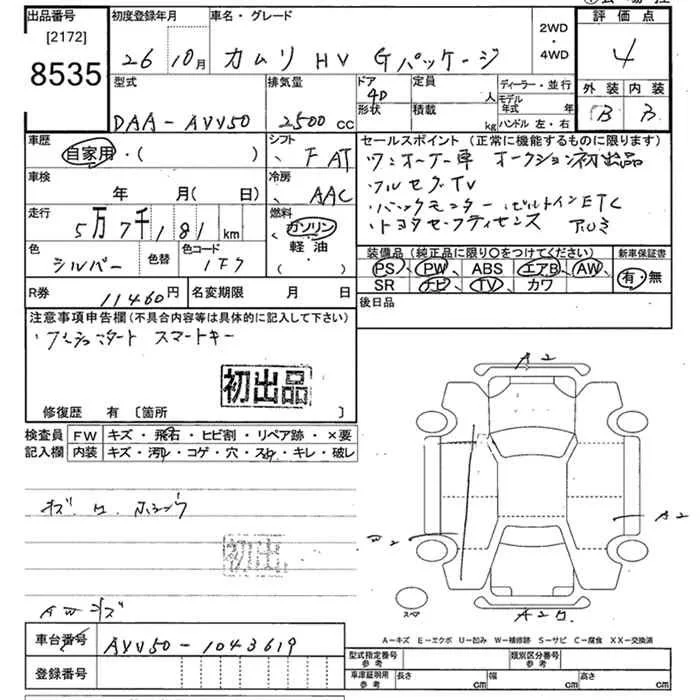 出品番号 初度登録年月 車名・グレード 評価点
[2172]
8535
26 10月 カムリ HV Gパッケージ
2WD・4WD
4
外装 内装
B 3
型式 排気量 ドア形状 定員 人 ディーラー・並行
DAA-AVV50 2500cc 4D 積載 kg モデル年式 年
ハンドル 左・右
車歴 シフト セールスポイント(正常に機能するものに限ります)
自家用・( ) FAT
・ワンオーナー車 オークション初出品
・フルセグTV
・バックモニター ・ビルトインETC
・トヨタセーフティセンス アルミ
車検 冷房
年 月(日) AAC
走行 燃料
5万7千181km ガソリン
軽油
・( )
色 色替 色コード
シルバー 1F7
装備品(純正品に限り〇をつけてください) 新車保証書
PS、PW、ABS エアB、AW、 有・無
SR ナビ、TV、カワ
後日品
R券 11460円 名変期限 月 日
注意事項申告欄(不具合内容等は具体的に記入して下さい)
・プッシュスタート スマートキー
初出品
修復歴 有〔箇所 〕
検査員記入欄 FW キズ・飛石・ヒビ割・リペア跡・×要
内装 キズ・汚れ・コゲ・穴・スレ・キレ・破レ
初出
AWキズ
A2
A2
スペ
車台番号 AVV50-1043619
登録番号
A-キズ E-エクボ U-凹み W-補修跡 S-サビ C-腐食 XX-交換済
型式指定番号 参考 類別区分番号 参考
車庫証明用 参考 長さ cm 幅 cm 高さ cm